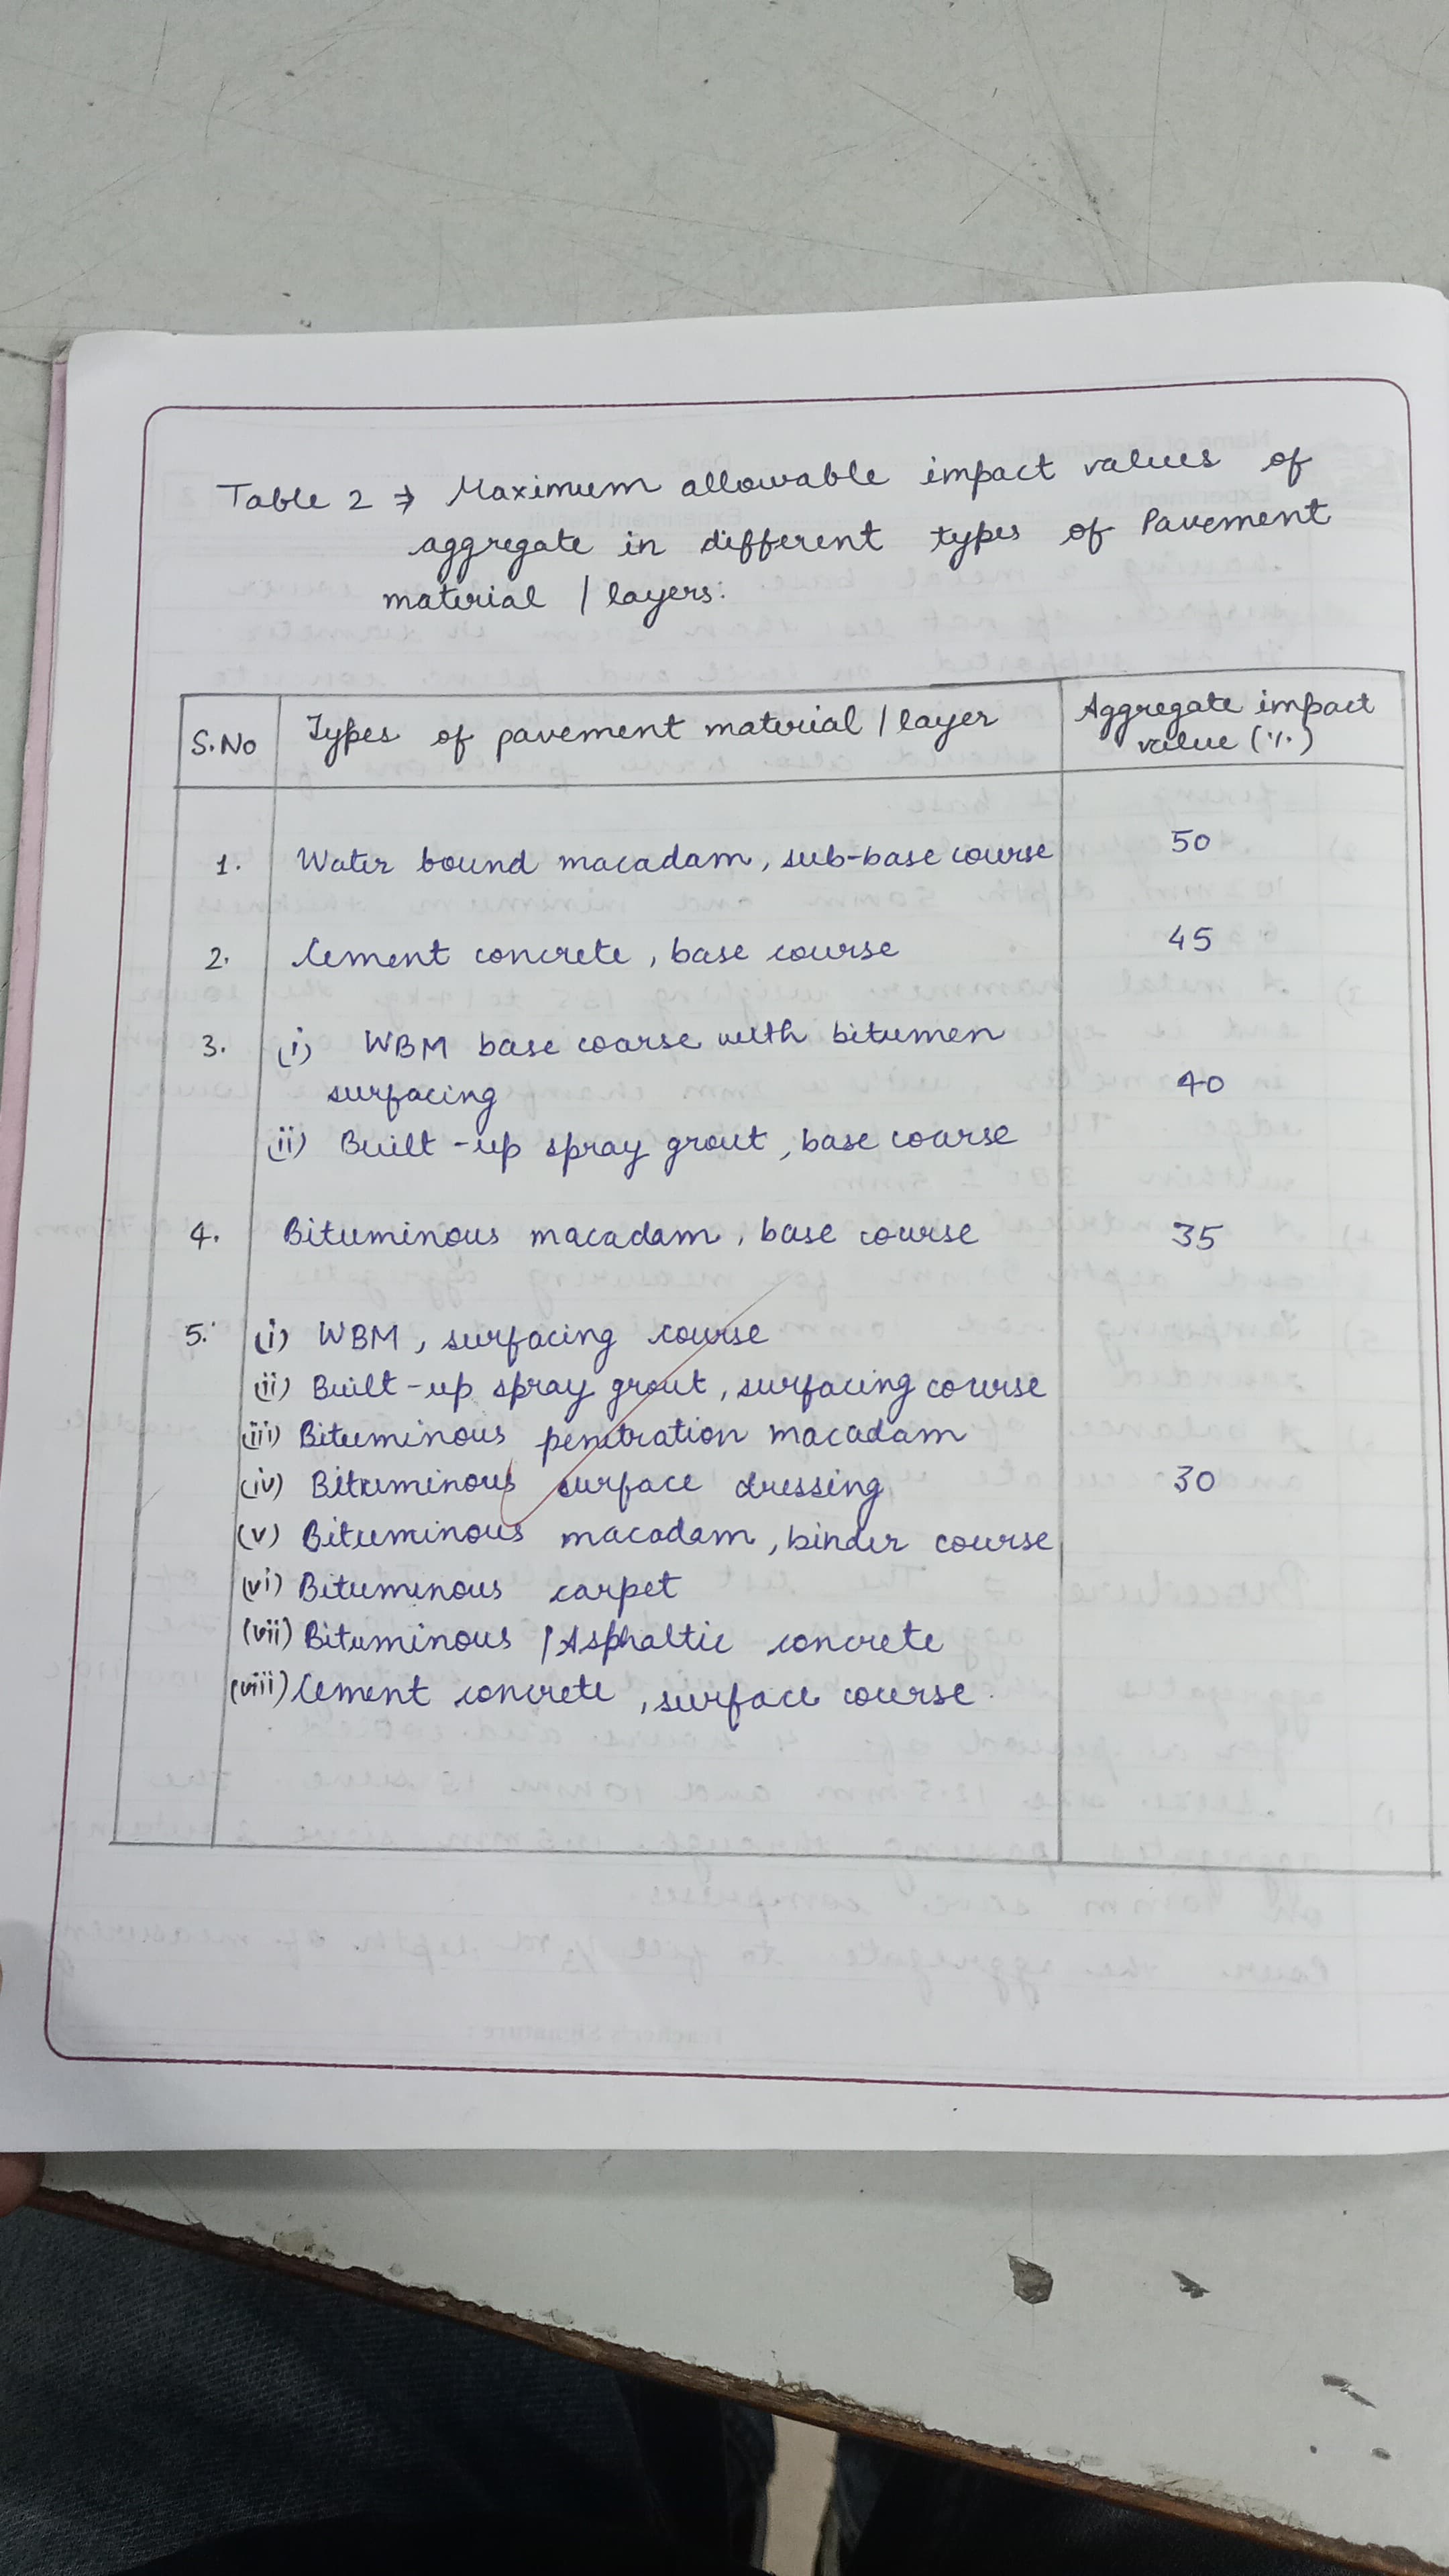 Table 2 → Maximum allowable impact values of
aggregate in different types of Pavement
material / layers:
S.No Types of pavement material / layer Aggregate impact value (%)
1. Water bound macadam, sub-base course 50
2. Cement concrete, base course 45
3. (i) WBM base coarse with bitumen
surfacing 40
(ii) Built-up spray grout, base coarse
4. Bituminous macadam, base course 35
5. (i) WBM, surfacing course
(ii) Built-up spray grout, surfacing course
(iii) Bituminous penetration macadam
(iv) Bituminous surface dressing 30
(v) Bituminous macadam, binder course
(vi) Bituminous carpet
(vii) Bituminous / Asphaltic concrete
(viii) Cement concrete, surface course.